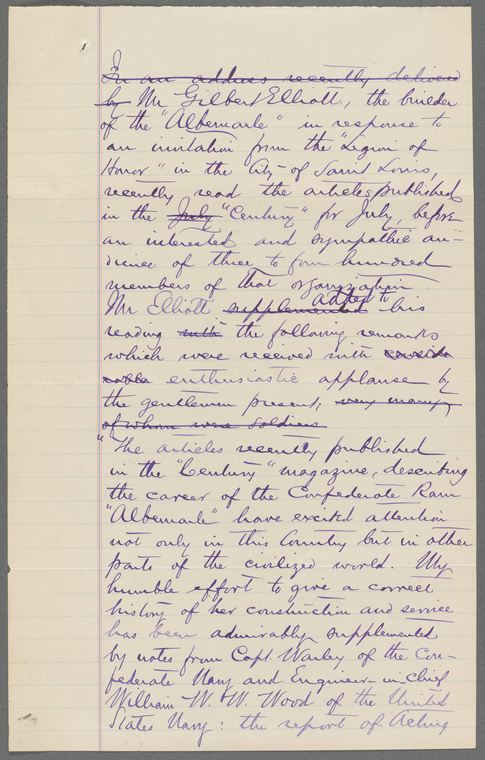 1
In an address recently delivered
by Mr Gilbert Elliott, the builder
of the "Albemarle" in response to
an invitation from the "Legion of
Honor" in the City of Saint Louis,
recently read the articles published
in the July "Century" for July, before
an interested and sympathetic au-
dience of three to four hundred
members of that organization.
Mr Elliott supplemented added to his
reading with the following remarks
which were received with conside
rable enthusiastic applause by
the gentlemen present; very many
of whom were soldiers
"The articles recently published
in the "Century" magazine, describing
the career of the Confederate Ram
"Albemarle" have excited attention
not only in this Country but in other
parts of the civilized world. My
humble effort to give a correct
history of her construction and service
has been admirably supplemented
by notes from Capt. Warley of the Con-
federate Navy and Engineer-in-chief
William W. W. Wood of the United
States Navy: the report of Acting